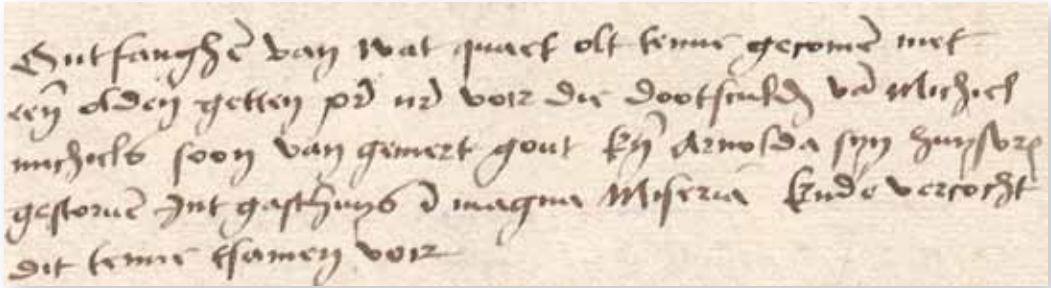 Ontfanghē van wat quaet olt tenne gecomē met
eeñ olden getten pot uut voir die dootsculd vā Michiel
michiels soon van gemert gout eñ Arnolda syn huysvr
gestorvē Int gasthuys ī magna Miseria Ende vercocht
dit tenne tsamen voir